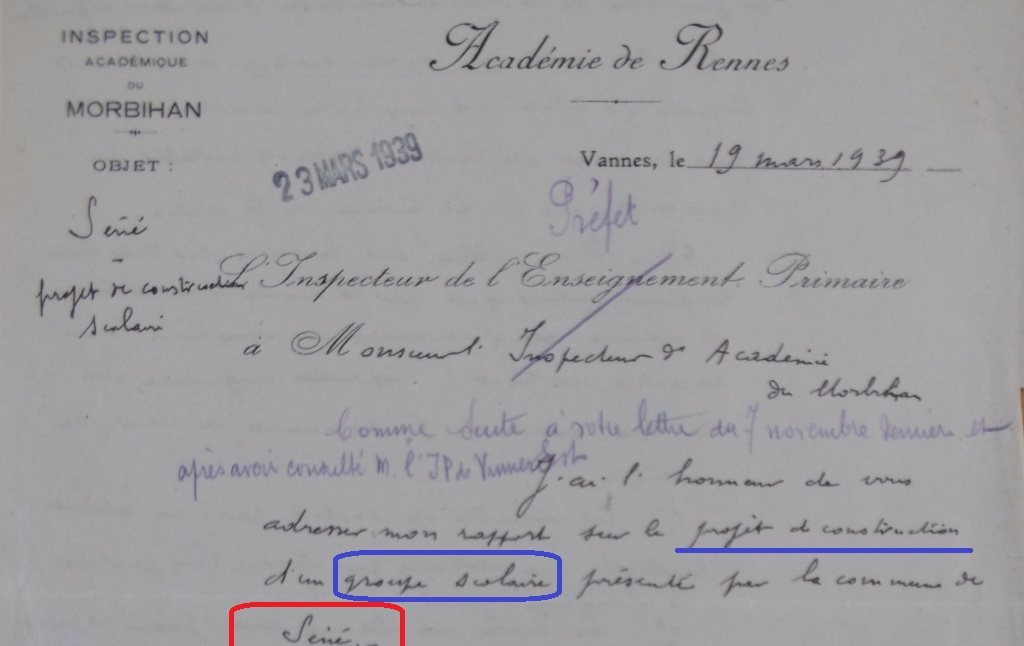 INSPECTION
ACADÉMIQUE
DU
MORBIHAN
Académie de Rennes
OBJET :
23 MARS 1939
Vannes, le 19 mars 1939
Séné
-
projet de construction
scolaire
Préfet
L'Inspecteur de l'Enseignement Primaire
à Monsieur l'Inspecteur d'Académie
du Morbihan
Comme suite à votre lettre du 7 novembre dernier et
après avoir consulté M. l'IP de Vannes Est
J'ai l'honneur de vous
adresser mon rapport sur le projet de construction
d'un groupe scolaire présenté par la commune de
Séné.